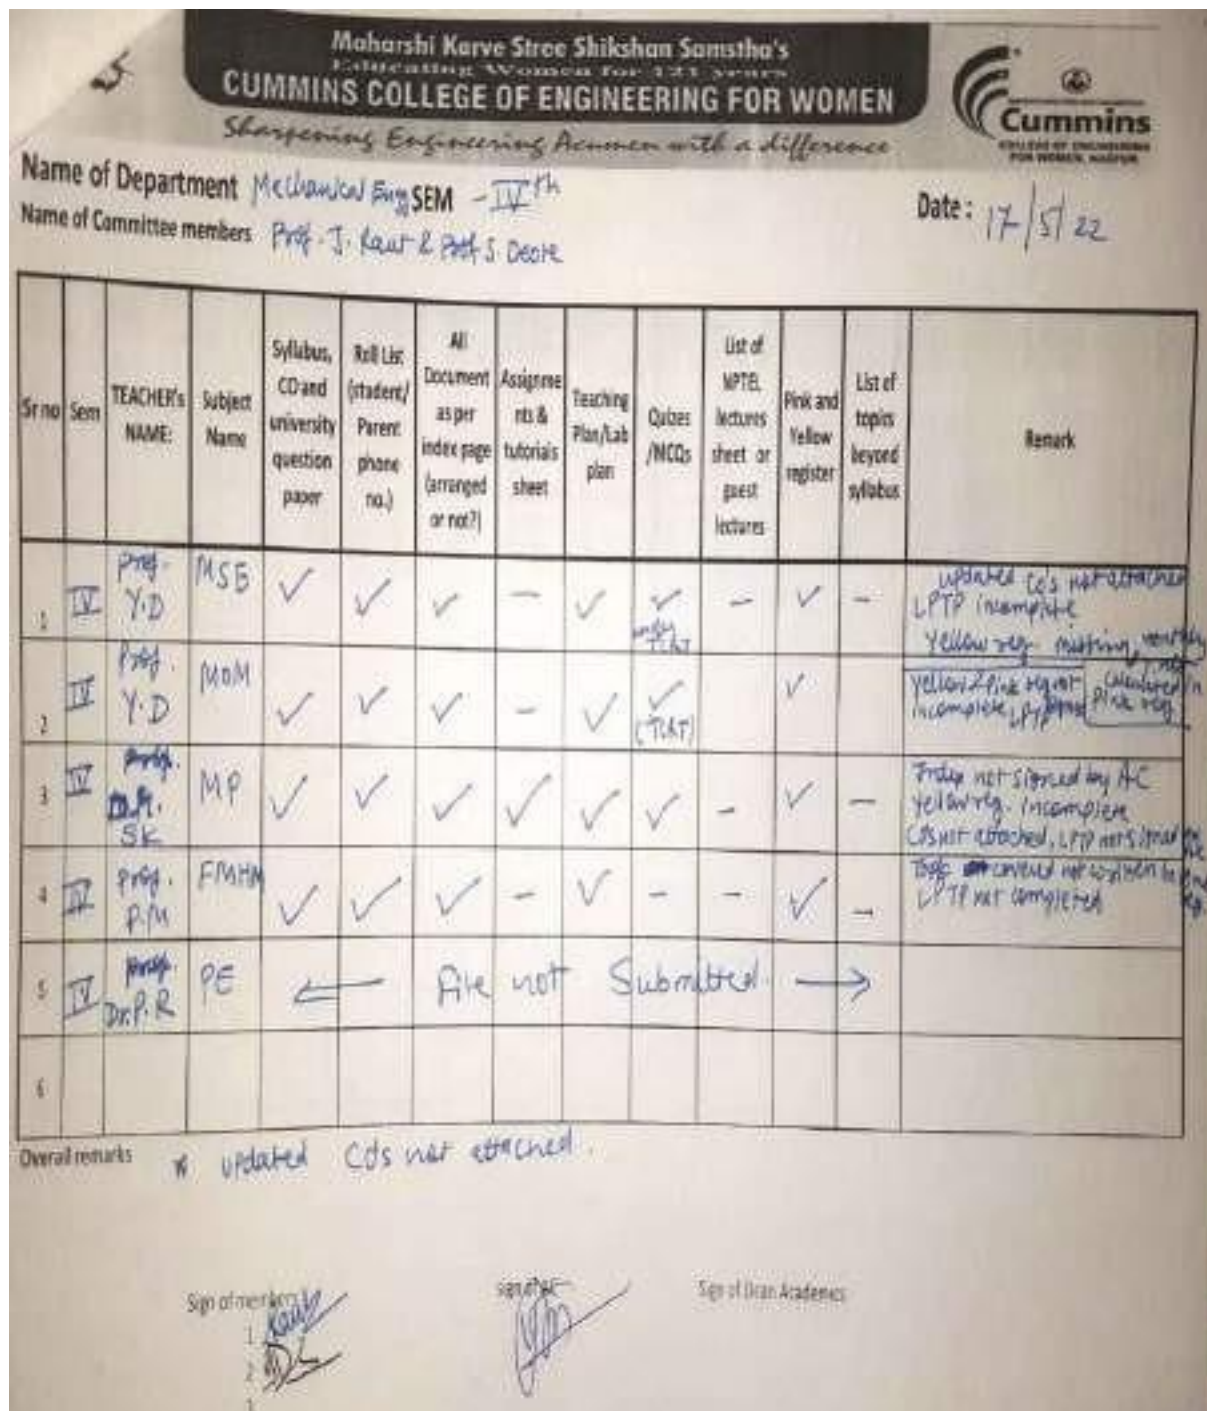 Maharshi Karve Stree Shikshan Samstha's
Educating Women for 121 years
CUMMINS COLLEGE OF ENGINEERING FOR WOMEN
Sharpening Engineering Acumen with a difference
Cummins
COLLEGE OF ENGINEERING
FOR WOMEN, NAGPUR
Name of Department Mechanical Engg SEM - IVth
Date: 17/5/22
Name of Committee members Prof. J. Raut & Prof S. Deore
Sr no Sem TEACHER's NAME: Subject Name Syllabus, CO and university question paper Roll List (student/ Parent phone no.) All Document as per index page (arranged or not?) Assignme nts & tutorials sheet Teaching Plan/Lab plan Quizes /MCQs List of NPTEL lectures sheet or guest lectures Pink and Yellow register List of topics beyond syllabus Remark
1 IV Prof. Y.D MSE ✓ ✓ ✓ — ✓ ✓ only TLRT — ✓ — updated Co's not attached
LPTP incomplete
Yellow reg. missing, monthly
2 IV Prof. Y.D MOM ✓ ✓ ✓ — ✓ ✓ (TLRT) ✓ Yellow & Pink reg.
incomplete, LPTP not calculated in Pink reg.
3 IV Prof. SK MP ✓ ✓ ✓ ✓ ✓ ✓ — ✓ — Index not signed by AC
Yellow reg. incomplete
COs not attached, LPTP not signed
4 IV Prof. P.M FMHM ✓ ✓ ✓ — ✓ — — ✓ — Topic covered not written
LPTP not completed
5 IV Dr. P. R PE ← File not Submitted. →
6
Overall remarks * updated COs not attached.
Sign of members
Sign of Dean Academics
1
2